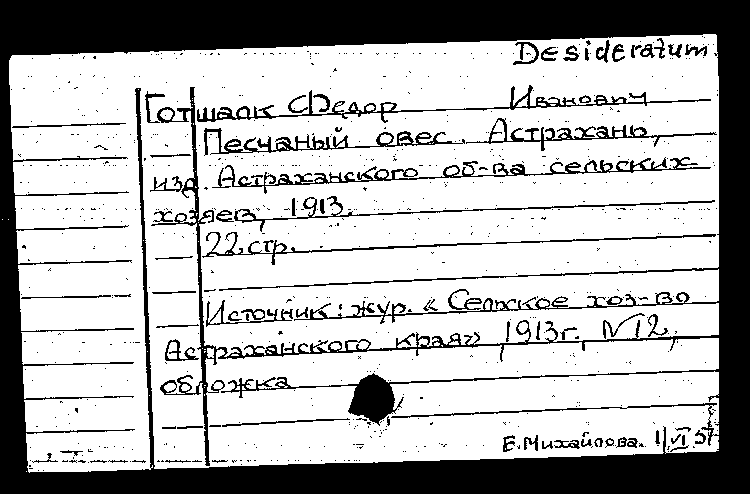 Desideratum.
Готшалк Фёдор Иванович
Песчаный овес. Астрахань,
изд. Астраханского об-ва сельских
хозяев, 1913.
22.стр.
Источник: жур. « Сельское хоз-во
Астраханского края» , 1913г., N 12,
обложка
Е.Михайлова. 1/VI 57